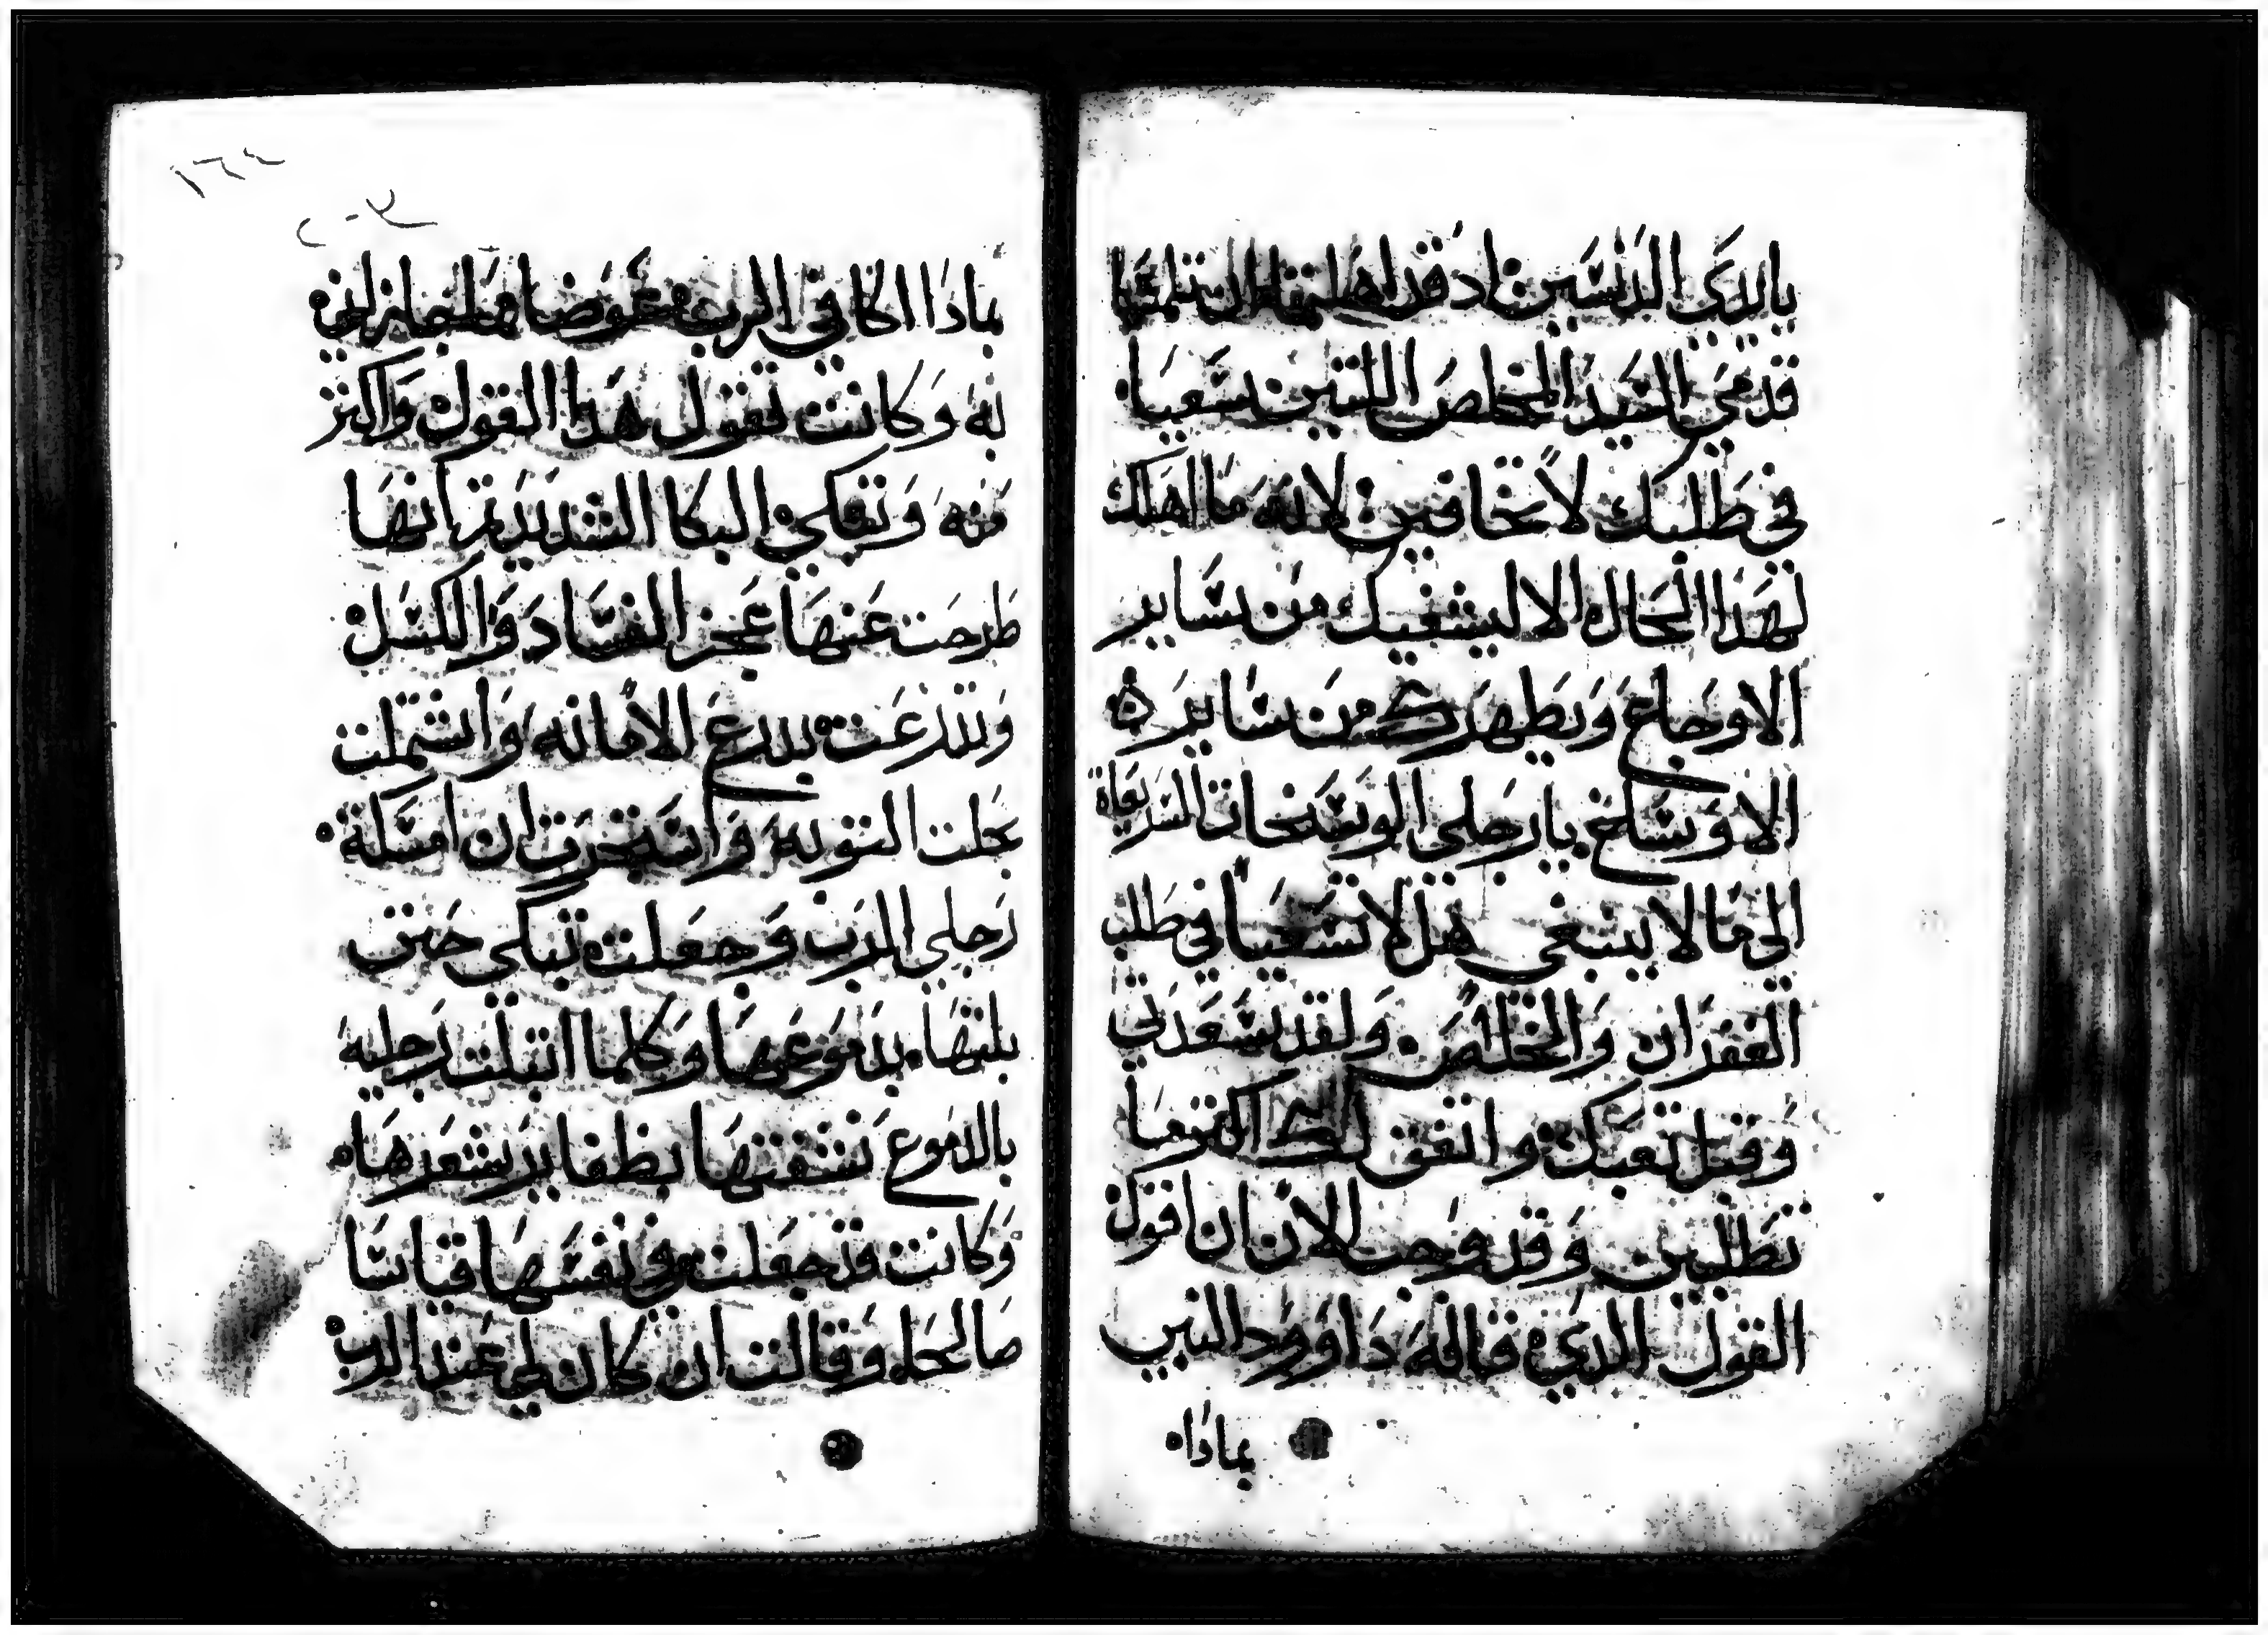 يا يدي الدنسين اد قد اهلتما ان تلمسا
قدمي السيد المخلص اللتين سعيا
في طلبك لا تخافين لانه ما اهلك
لهذا الحال الا ليشفيك من ساير
الاوجاع ويطهرك من ساير
الاوساخ يا رجلي الوسخات السريعاة
الى ما لا ينبغي هل لا تسعيا في طلب
الغفران والخلاص ولقد سعدتي
وقبل تعبك واتفق لك اكثر مما
تطلبين وقد وجب الان ان اقول
القول الدي قاله داوود النبي
بمادا
١٦٤
بمادا اكافي الرب عوضا مما جازاني
به وكانت تقول هدا القول واكتر
منه وتبكي البكا الشديد تم انها
طرحت عنها عجز الفساد والكسل
وتدرعت بدرع الامانه واشتملت
بحلت التوبه واستخرت ان امسكة
رجلي الرب وجعلت تبكي حتى
بلتها بدموعها وكلما ابتلت رجليه
بالدموع نشفتها بظفاير شعرها
وكانت قد جعلت في نفسها قياسا
صالحه وقالت ان كان لي عند الرب